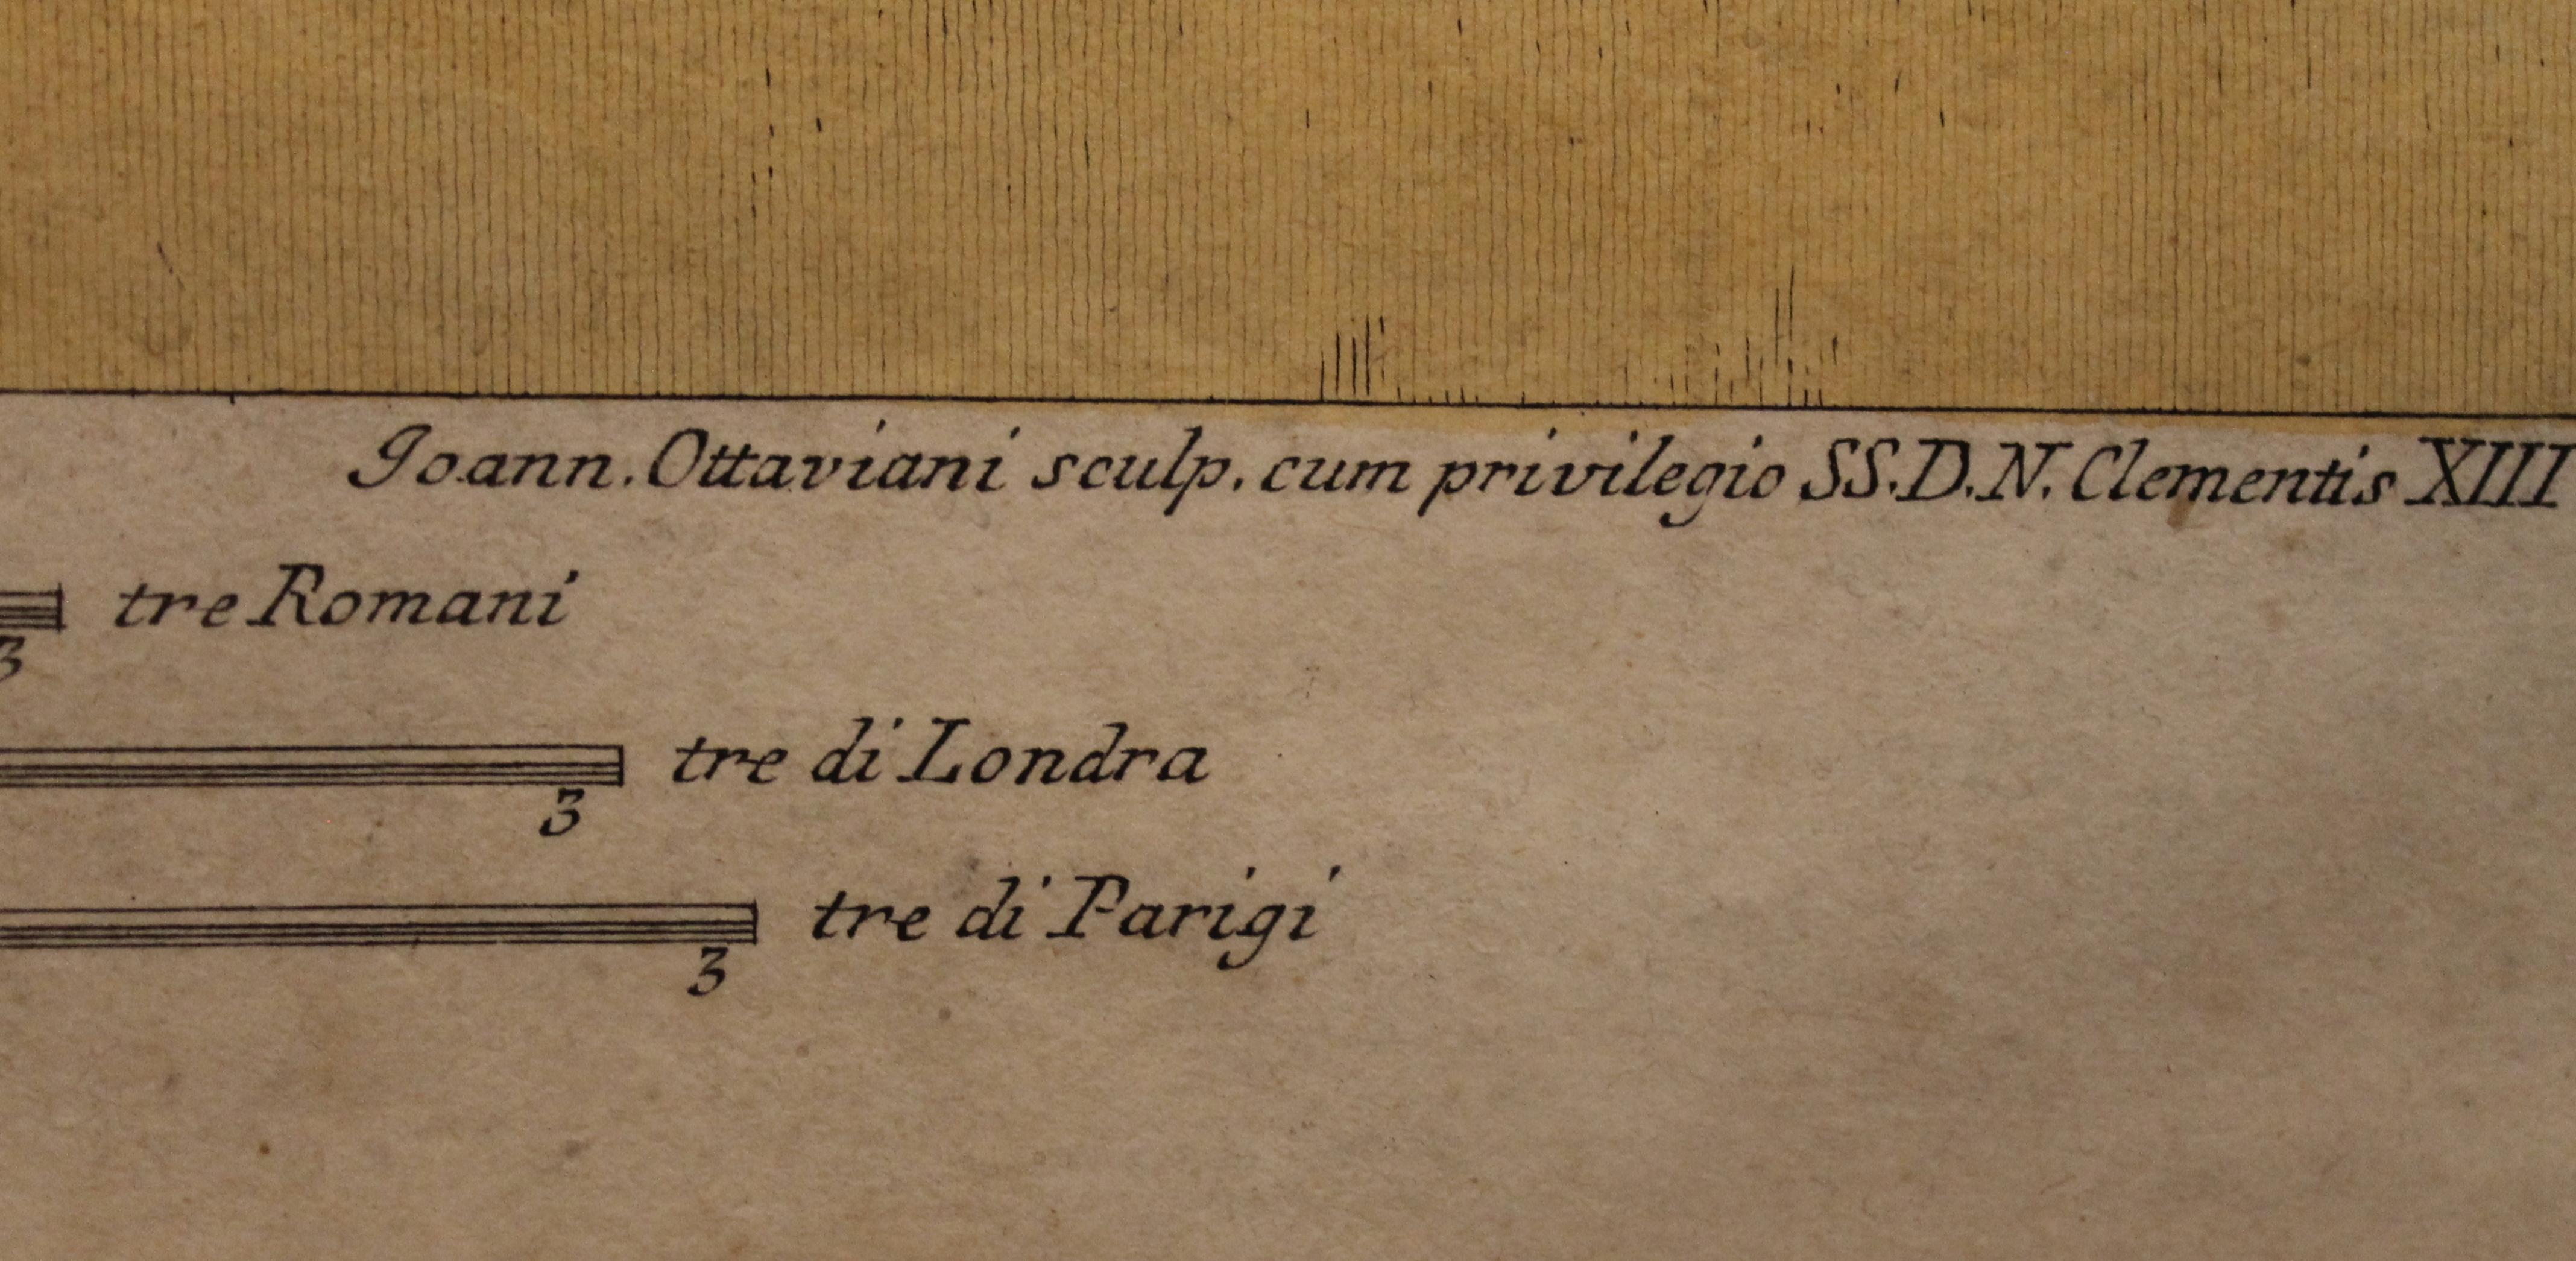 Joann. Ottaviani sculp. cum privilegio SS.D.N. Clementis XIII
tre Romani
3
tre di Londra
3
tre di Parigi
3